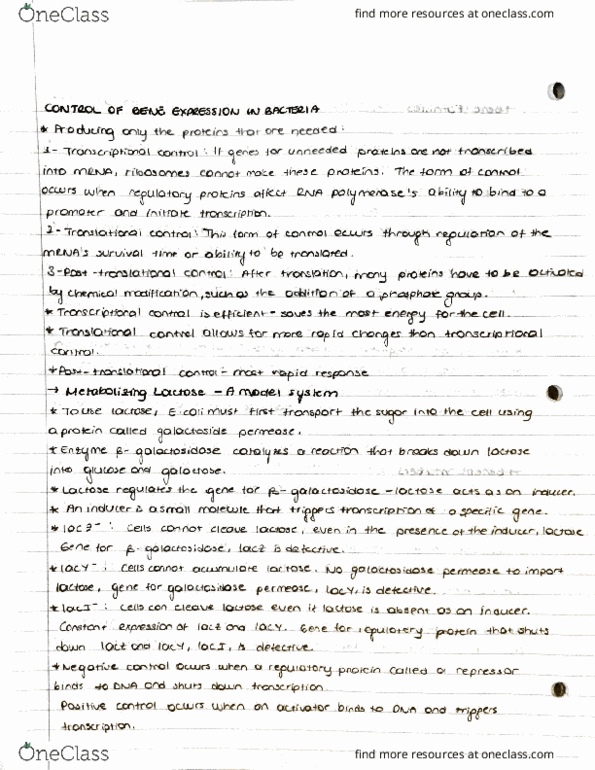 OneClass
find more resources at oneclass.com
CONTROL OF GENE EXPRESSION IN BACTERIA
* Producing only the proteins that are needed:
1- Transcriptional control: If genes for unneeded proteins are not transcribed
into mRNA, ribosomes cannot make these proteins. The form of control
occurs when regulatory proteins affect RNA polymerase's ability to bind to a
promoter and initiate transcription.
2- Translational control: This form of control occurs through regulation of the
mRNA's survival time or ability to be translated.
3-Post-translational control: After translation, many proteins have to be activated
by chemical modification, such as the addition of a phosphate group.
* Transcriptional control is efficient - saves the most energy for the cell.
* Translational control allows for more rapid changes than transcriptional
control.
* Post-translational control - most rapid response
→ Metabolizing Lactose - A model system
* To use lactose, E.coli must first transport the sugar into the cell using
a protein called galactoside permease.
* Enzyme β-galactosidase catalyzes a reaction that breaks down lactose
into glucose and galactose.
* Lactose regulates the gene for β-galactosidase - lactose acts as an inducer.
* An inducer is a small molecule that triggers transcription of a specific gene.
* lacZ⁻ : Cells cannot cleave lactose, even in the presence of the inducer, lactose
Gene for β-galactosidase, lacZ is defective.
* lacY⁻ : Cells cannot accumulate lactose. No galactosidase permease to import
lactose, gene for galactosidase permease, lacY, is defective.
* lacI⁻ : Cells can cleave lactose even if lactose is absent as an inducer.
Constant expression of lacZ and lacY. Gene for regulatory protein that shuts
down lacZ and lacY, lacI, is defective.
* Negative control occurs when a regulatory protein called a repressor
binds to DNA and shuts down transcription.
Positive control occurs when an activator binds to DNA and triggers
transcription.
OneClass
find more resources at oneclass.com